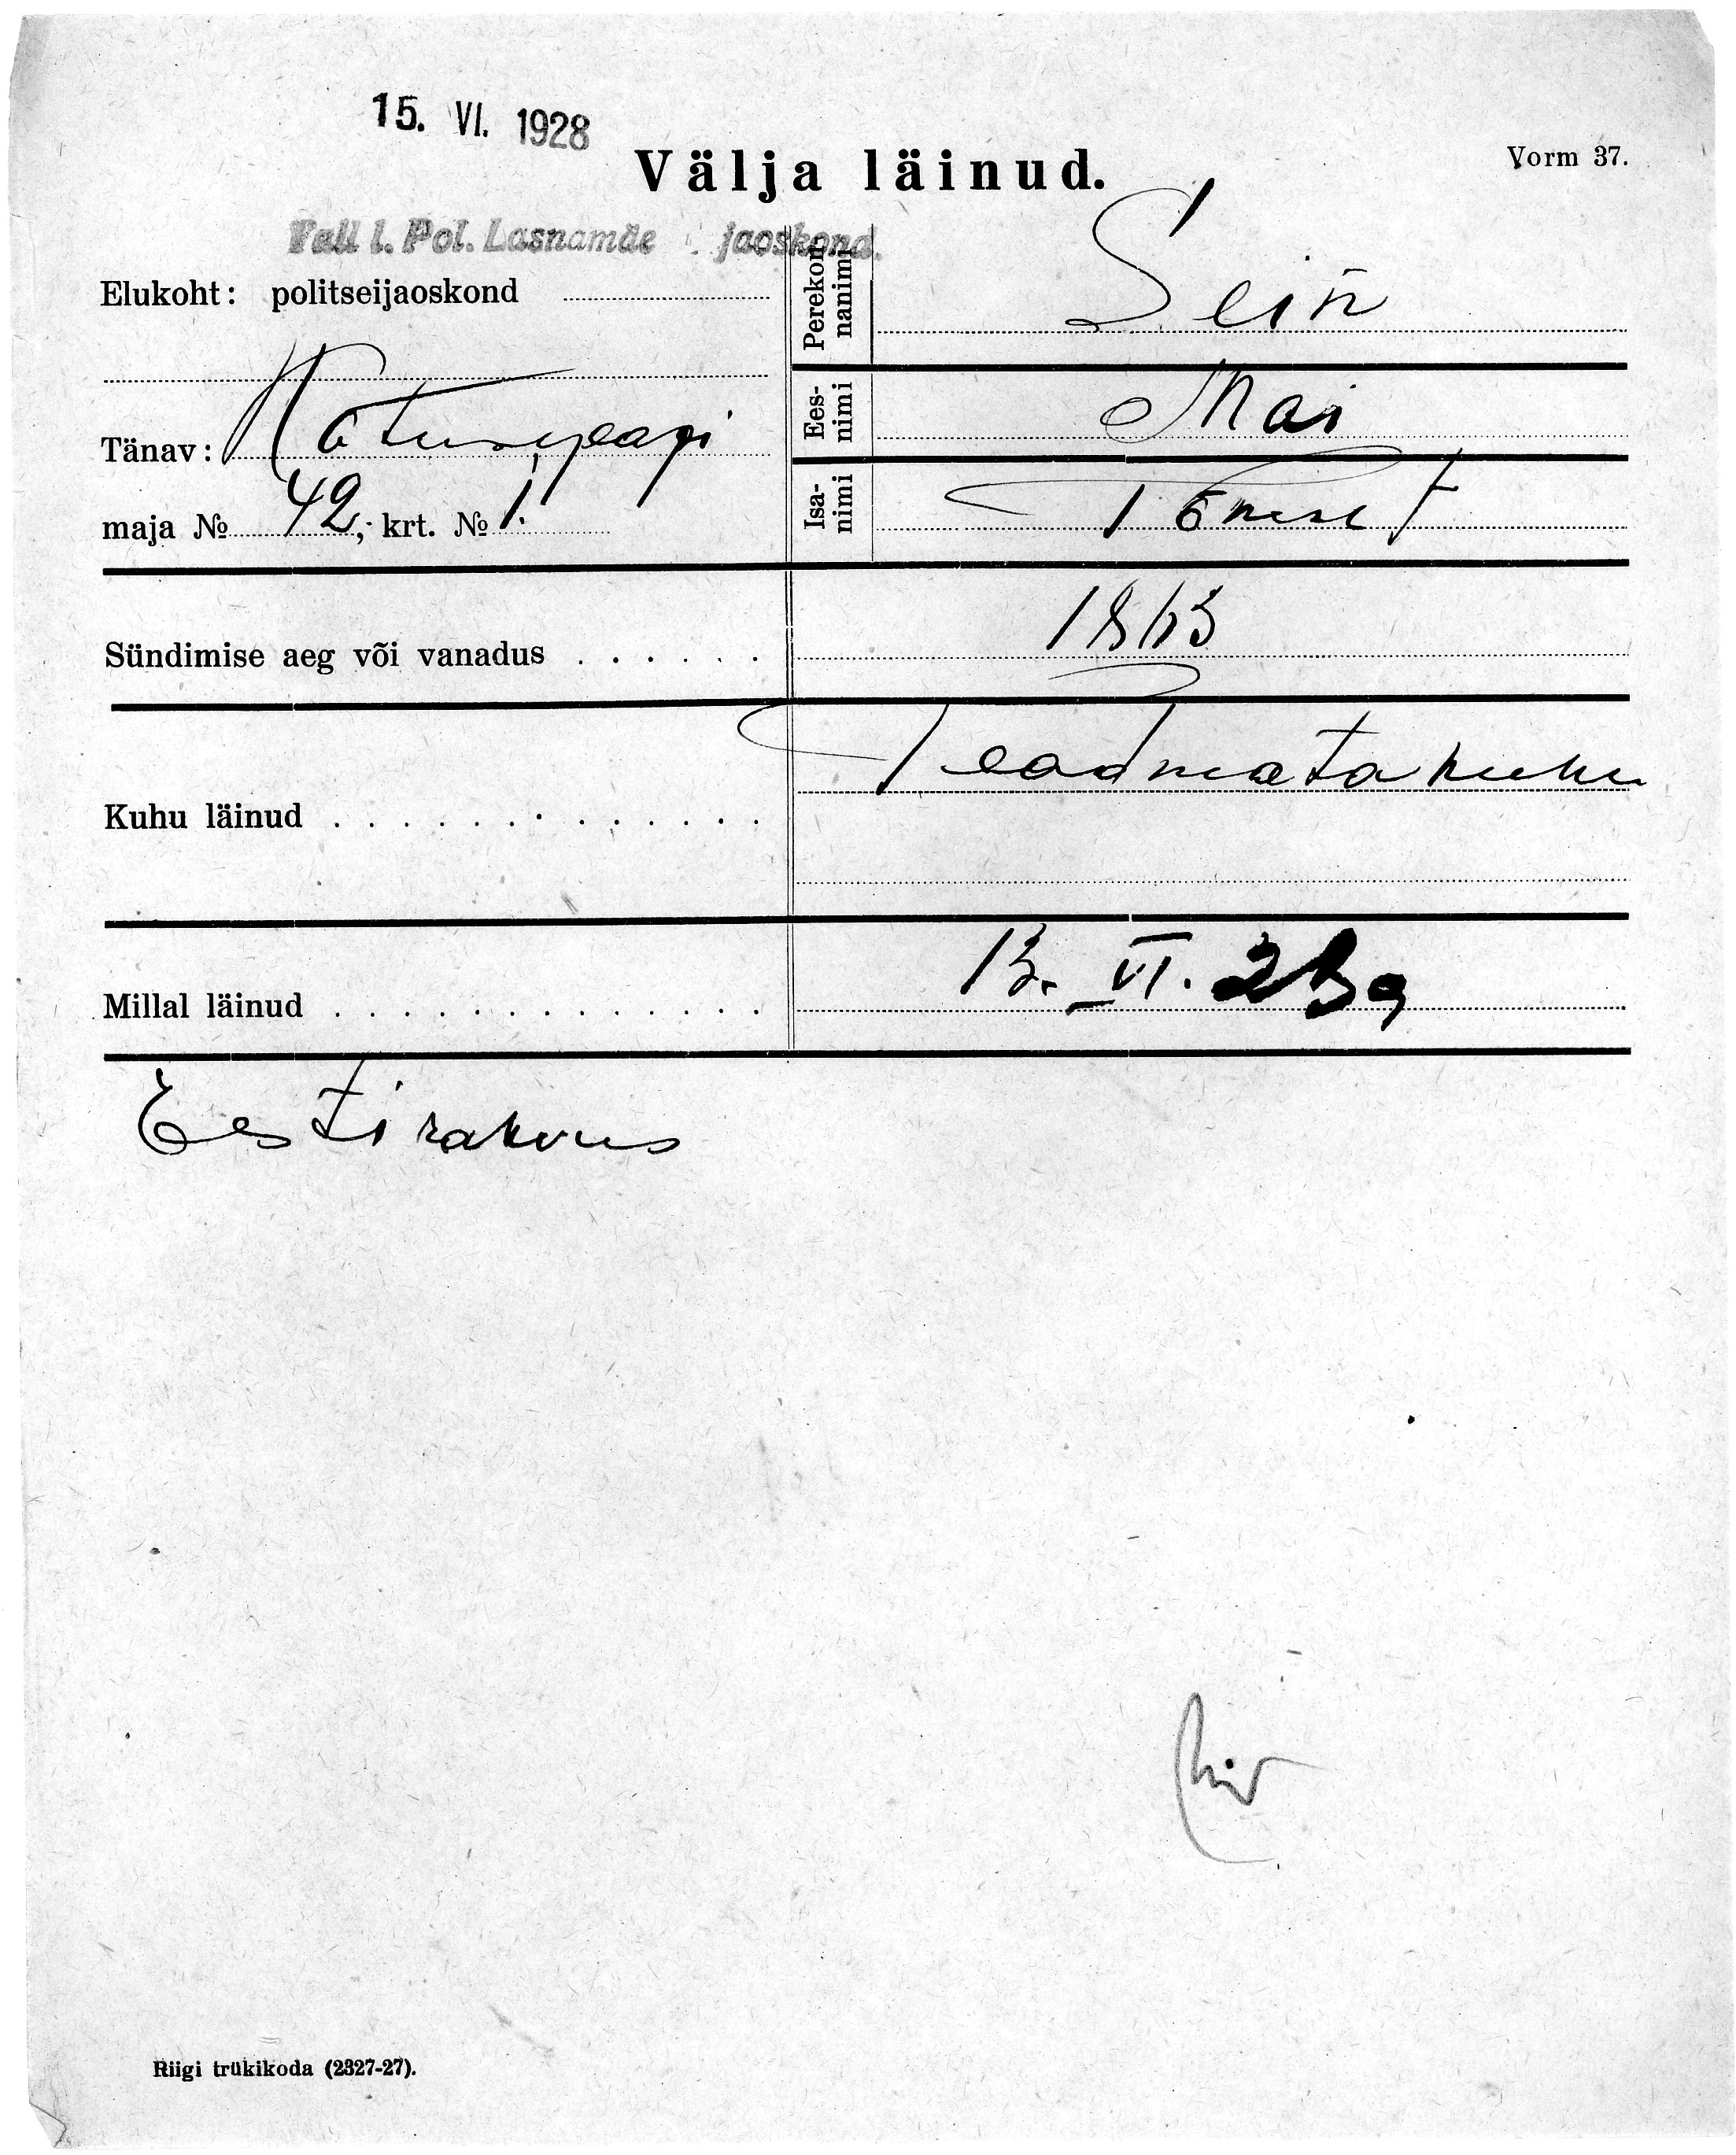 15. VI. 1928
Välja läinud.
Vorm 37.
Tall l. Pol. Lasnamäe jaoskond.
Elukoht: politseijaoskond
Tänav:
maja № 42, krt. № 1.
Perekonnanimi Sein
Eesnimi Mai
Isanimi Tõnu t
Sündimise aeg või vanadus 1863
Kuhu läinud Teadmata kuhu
Millal läinud 13. VI. 28 a
Eesti rahvus
Riigi trükikoda (2327-27).